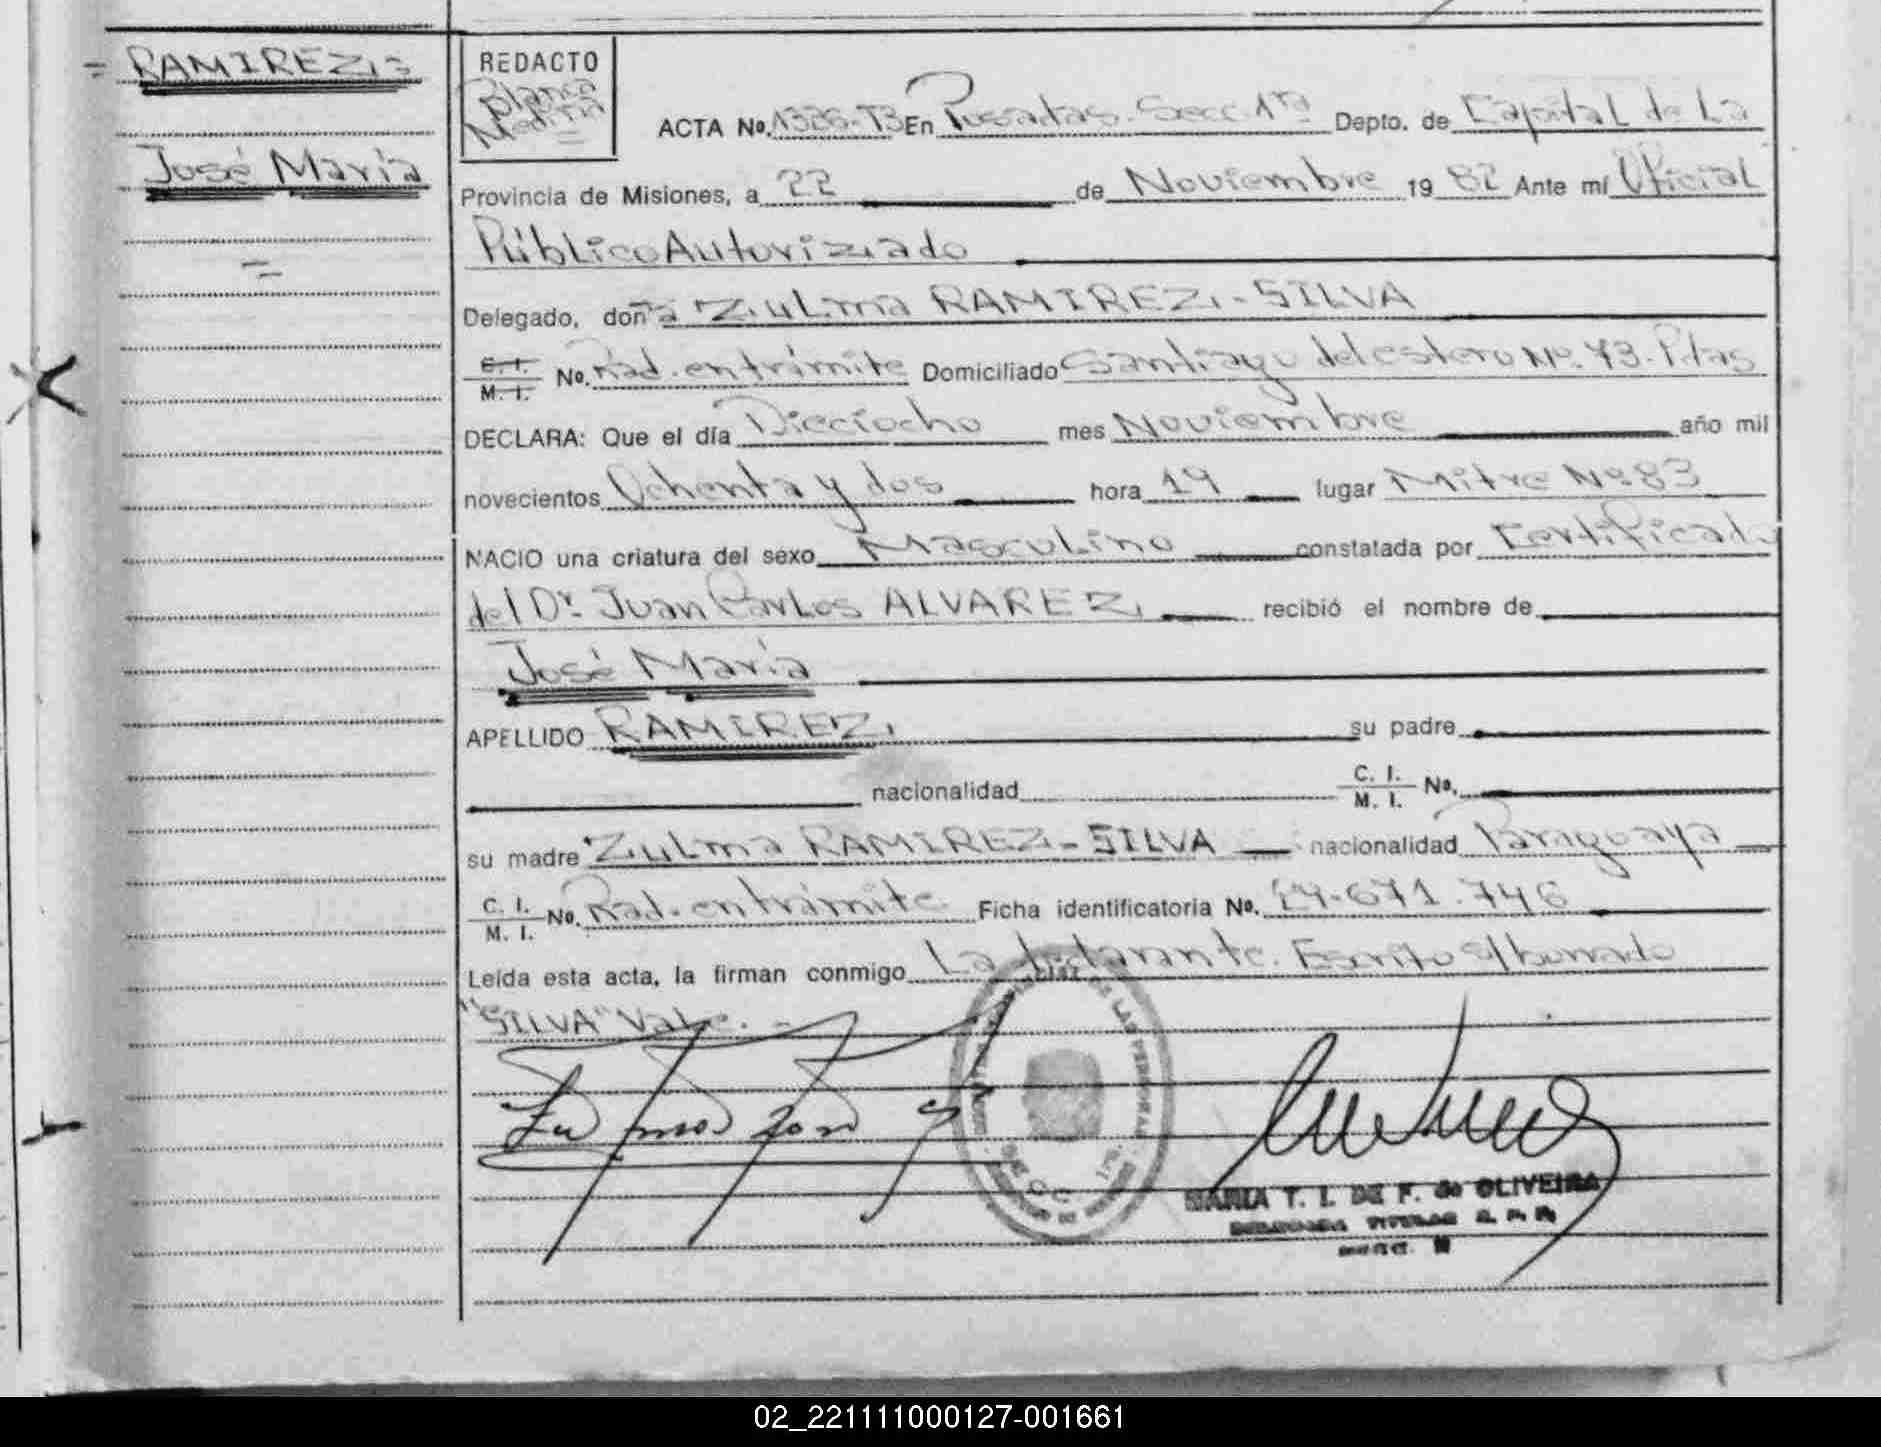 = RAMIREZ =
José María
=
REDACTO
Blanca
Medina
=
ACTA No. 1326-T3 En Posadas. Secc. 1ra Depto. de Capital de La
Provincia de Misiones, a 22 de Noviembre 19 82 Ante mí Oficial
Público Autorizado
Delegado, doña Zulma RAMIREZ - SILVA
C. I. / M. I. No. Rad. en trámite Domiciliado Santiago del estero No. 43. Pdas
DECLARA: Que el día Dieciocho mes Noviembre año mil
novecientos Ochenta y dos hora 19 lugar Mitre No 83
NACIO una criatura del sexo Masculino constatada por Certificado
del Dr. Juan Carlos ALVAREZ recibió el nombre de
José María
APELLIDO RAMIREZ su padre
nacionalidad C. I. / M. I. No.
su madre Zulma RAMIREZ - SILVA nacionalidad Paraguaya
C. I. / M. I. No. Rad. en trámite Ficha identificatoria No. 14.671.746
Leída esta acta, la firman conmigo La declarante. Escrito s/borrado
"SILVA" Vale. -
DE LAS PERSONAS
MARIA T. I. DE F. de OLIVEIRA
DELEGADA TITULAR
02_221111000127-001661